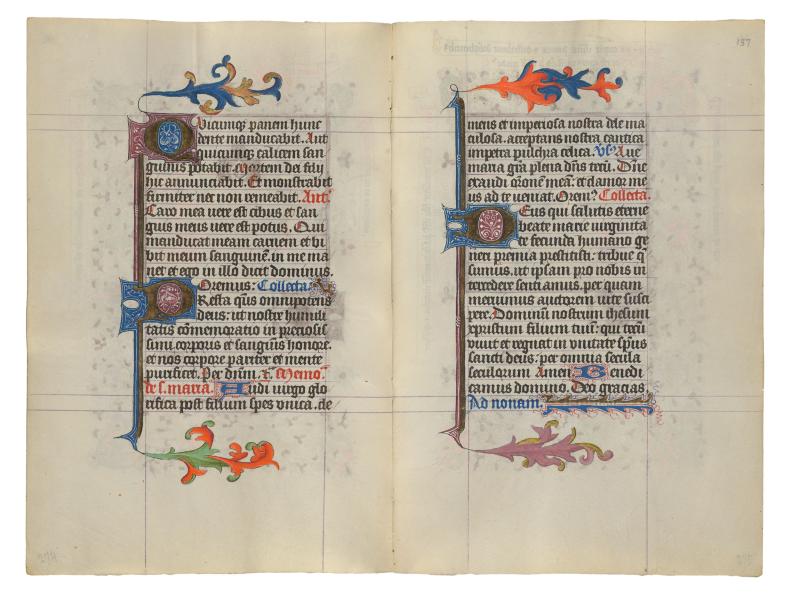 Quicumqꝫ panem hunc
dente manducabit. Ant
quicunqꝫ calicem san
guinis potabit. Mortem dei filij
hic annunciabit. Et monstrabit
firmiter nec non remeabit. Ant.
Caro mea vere est cibus et san
guis meus vere est potus. Qui
manducat meam carnem et bi
bit meum sanguinē. in me ma
net et ego in illo dicit dominus.
Oremus: Collecta.
Presta qūs omnipotens
deus: ut nostre humili
tatis cōmemoratio in preciosis
simi. corporis et sanguīs honore.
et nos corpore pariter et mente
purificet. Per dnm. X. Memo.
de s. maria. Audi virgo glo
rifica post filium spes vnica. de
157
mens et imperiosa nostra dele ma
culosa. acceptans nostra cantica
impetra pulchra celica. Vs Aue
maria gr̄a plena dn̄s tecū. Dn̄e
exaudi or̄onē meā: et clamor me
us ad te veniat. Orem? Collecta.
Deus qui salutis eterne
beate marie virginita
te fecunda humano ge
neri premia prestitisti: tribue q̄
sumus. ut ipsam pro nobis in
tercedere senti amus. per quam
meruimus auctorem vite susci
pere. Dominū nostrum ihesum
xpristum filium tuū: qui tecū
viuit et regnat in vnitate sp̄us
sancti deus: per omnia secula
seculorum Amen Benedi
camus domino. Deo gracias.
Ad nonam.
274